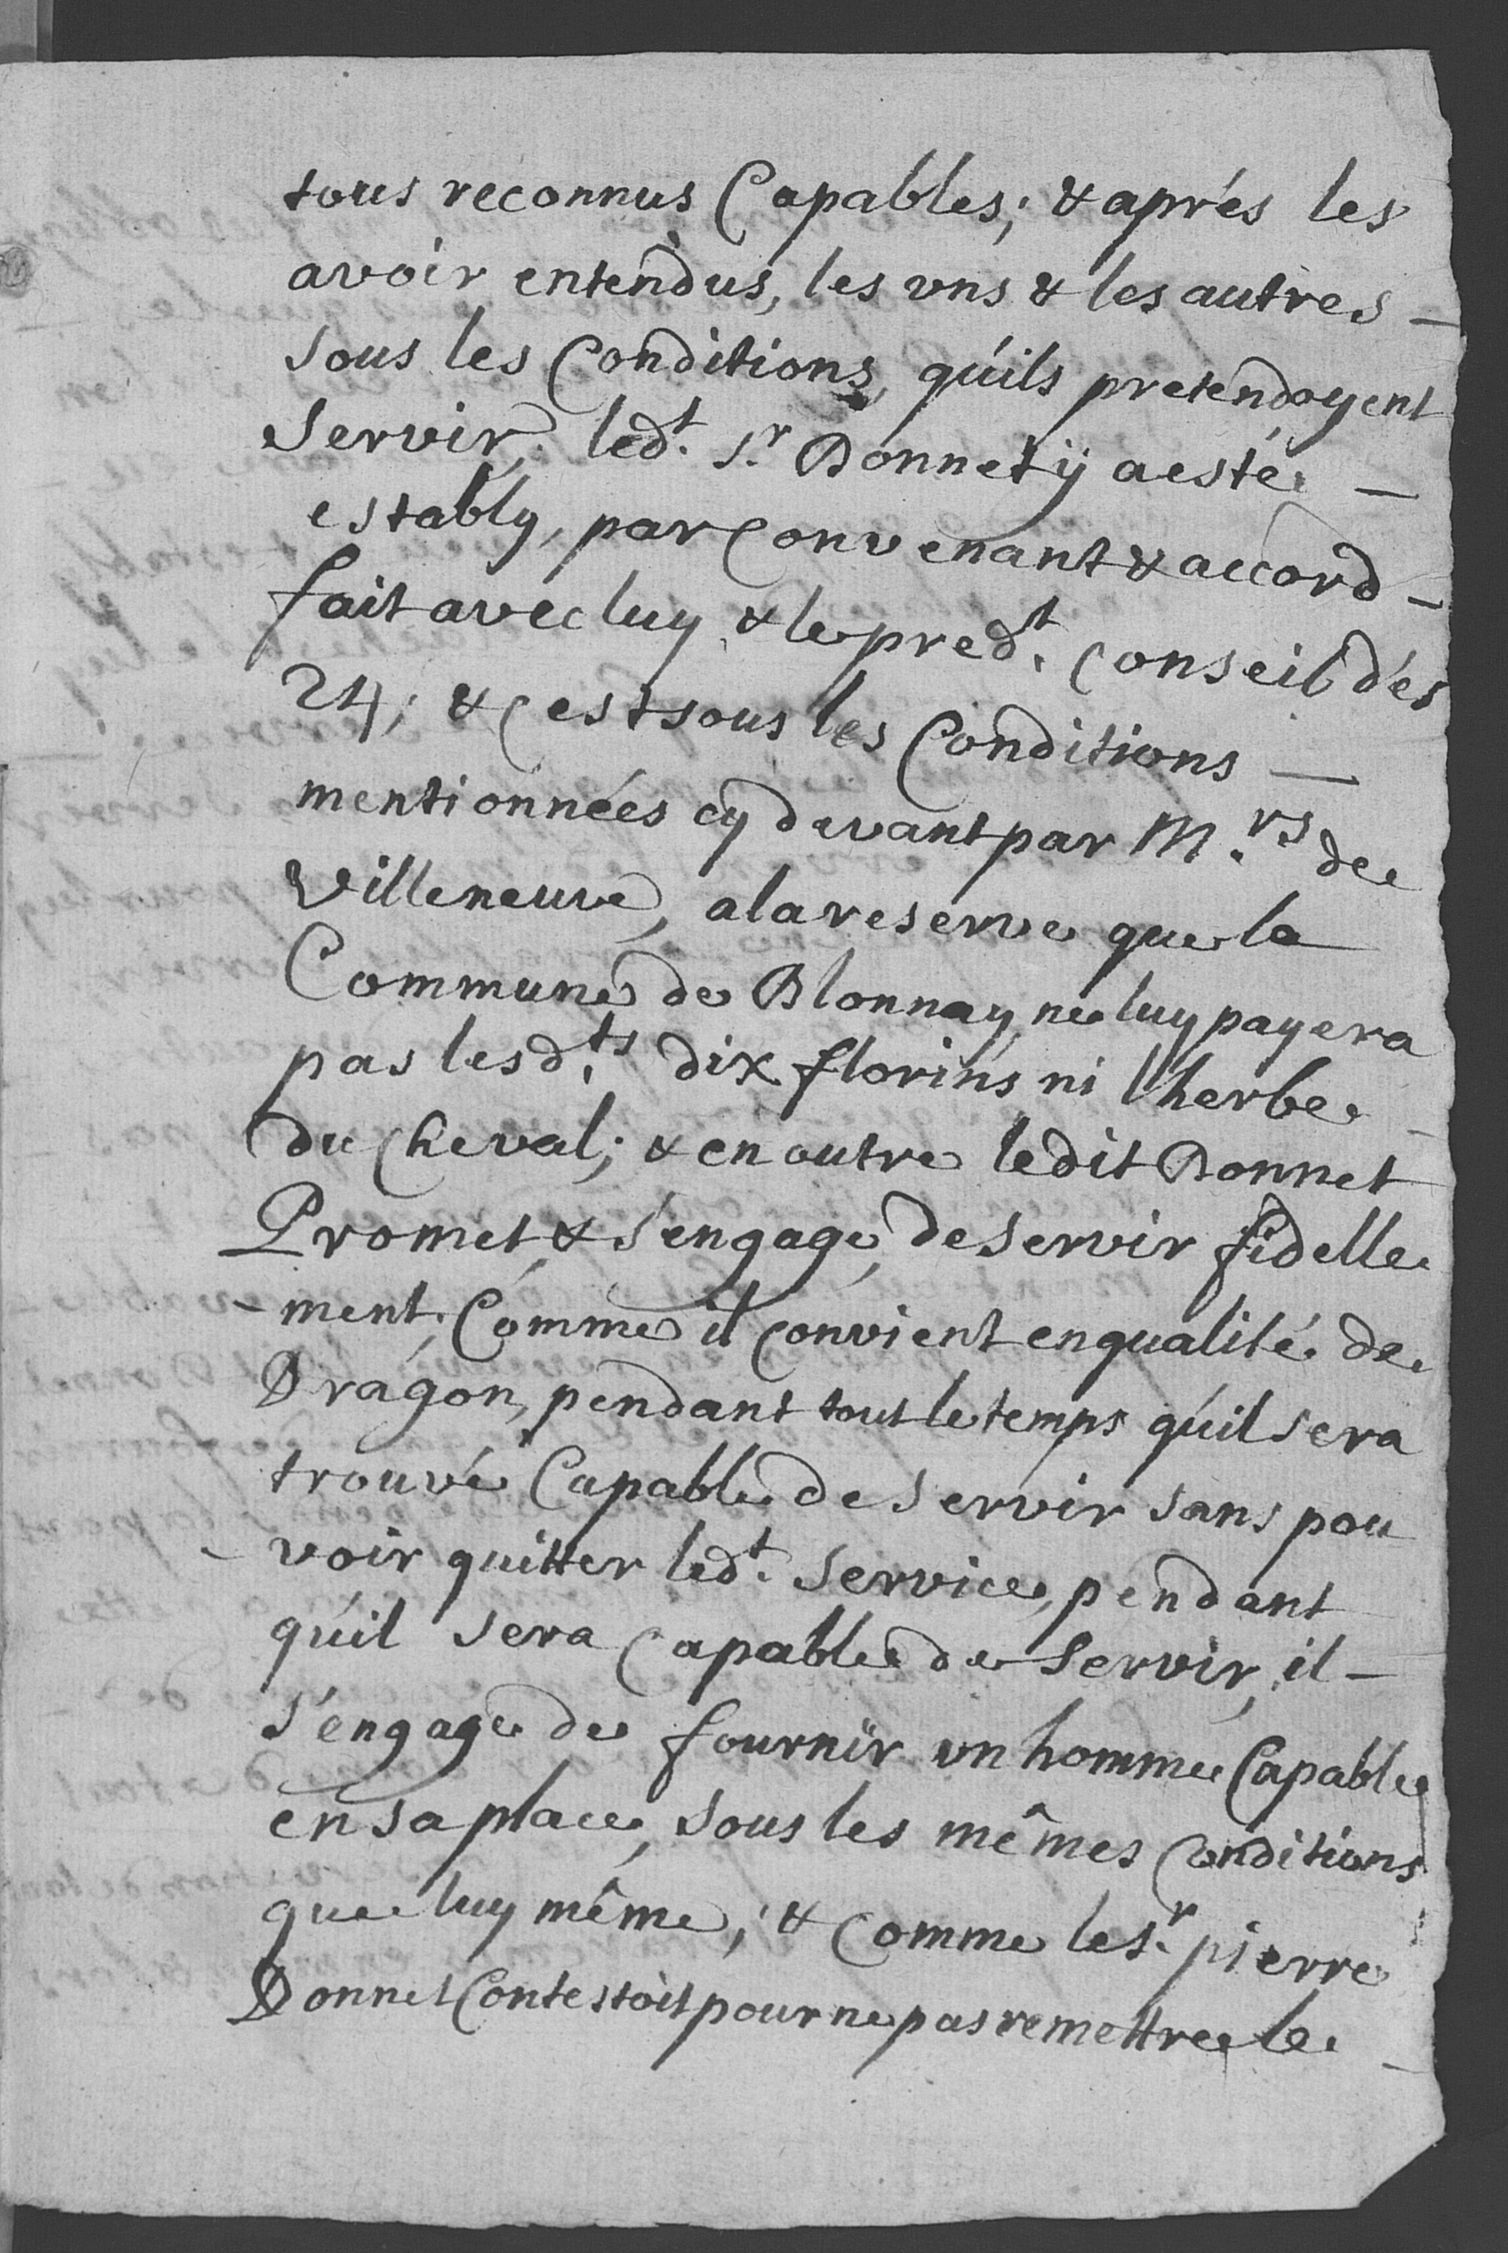 tous reconnus Capables; & aprés les
avoir entendus, les vns & les autres —
sous les Conditions, qu'ils pretendoyent
servir; led.t S.r Donnet ÿ a esté —
estably, par Convenant & accord —
fait avec luy & le pred.t Conseil dés
24; & cest sous les Conditions —
mentionnées cy devant par M.rs de
Villeneuve, a la reserve que la
Commune de Blonnay, ne luy payera
pas lesd.ts dix florins ni lherbe —
du Cheval; & en outre ledit Donnet
Promet & s'engage, de servir fidelle
- ment, Comme il Convient en qualité de
Dragon, pendant tout le temps qu'il sera
trouvé Capable de servir sans pou
- voir quitter led.t Service, pendant
qu'il sera Capable de Servir, il —
s'engage de fournir vn homme Capable
en sa place, sous les mêmes Conditions
que luy même; & Comme le S.r pierre
Donnet Contestoit pour ne pas remettre le —